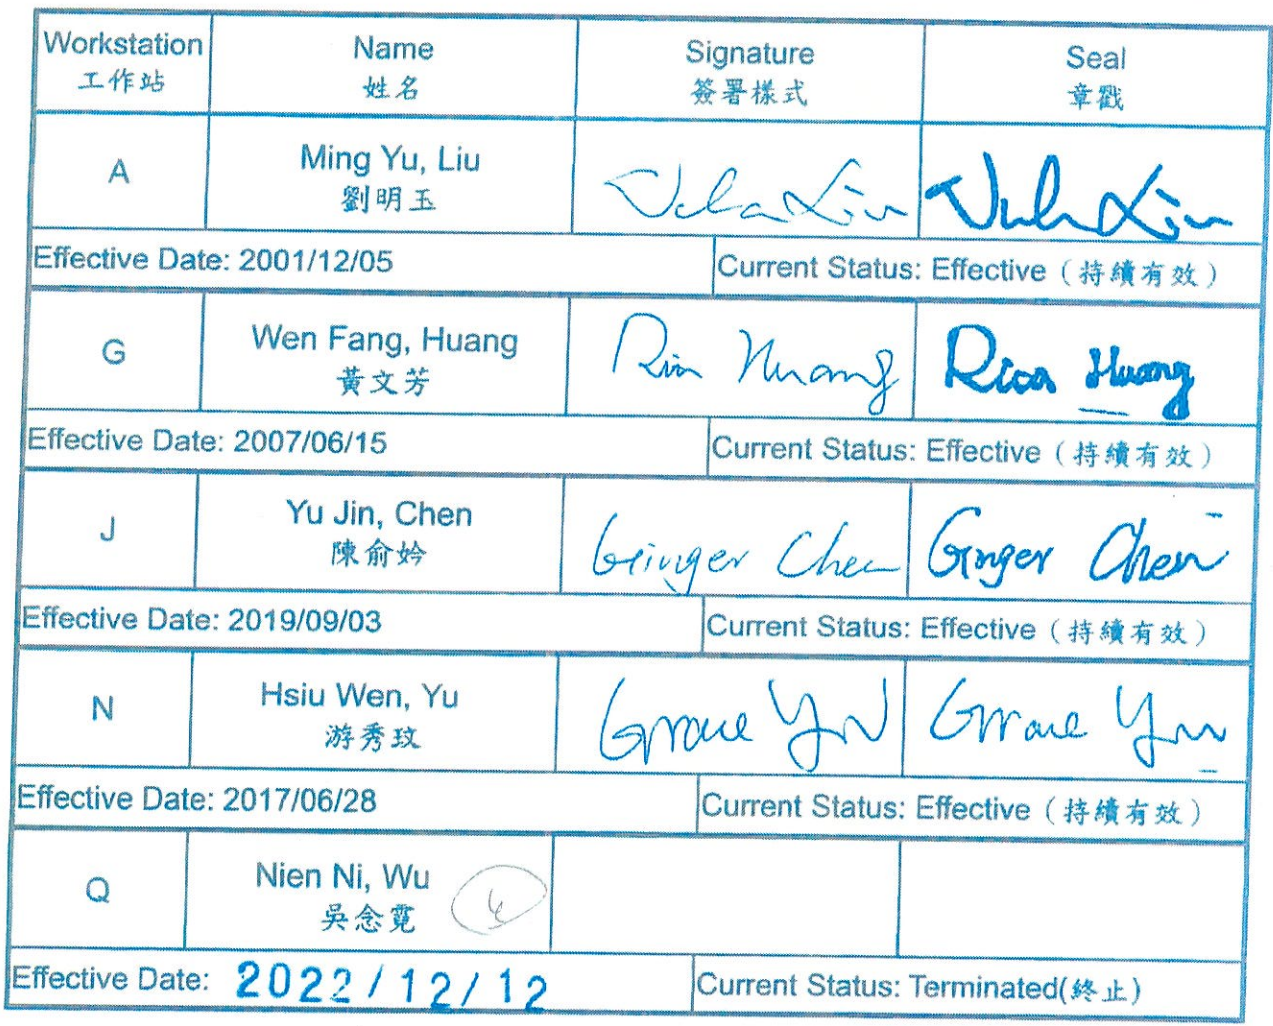 Workstation Name Signature Seal
工作站 姓名 簽署樣式 章戳
A Ming Yu, Liu
劉明玉
Effective Date: 2001/12/05 Current Status: Effective（持續有效）
G Wen Fang, Huang Huang Rica Huang
黃文芳
Effective Date: 2007/06/15 Current Status: Effective（持續有效）
J Yu Jin, Chen Ginger Chen Ginger Chen
陳俞妗
Effective Date: 2019/09/03 Current Status: Effective（持續有效）
N Hsiu Wen, Yu Grace Yu Grace Yu
游秀玟
Effective Date: 2017/06/28 Current Status: Effective（持續有效）
Q Nien Ni, Wu
吳念霓
Effective Date: 2022/12/12 Current Status: Terminated(終止)